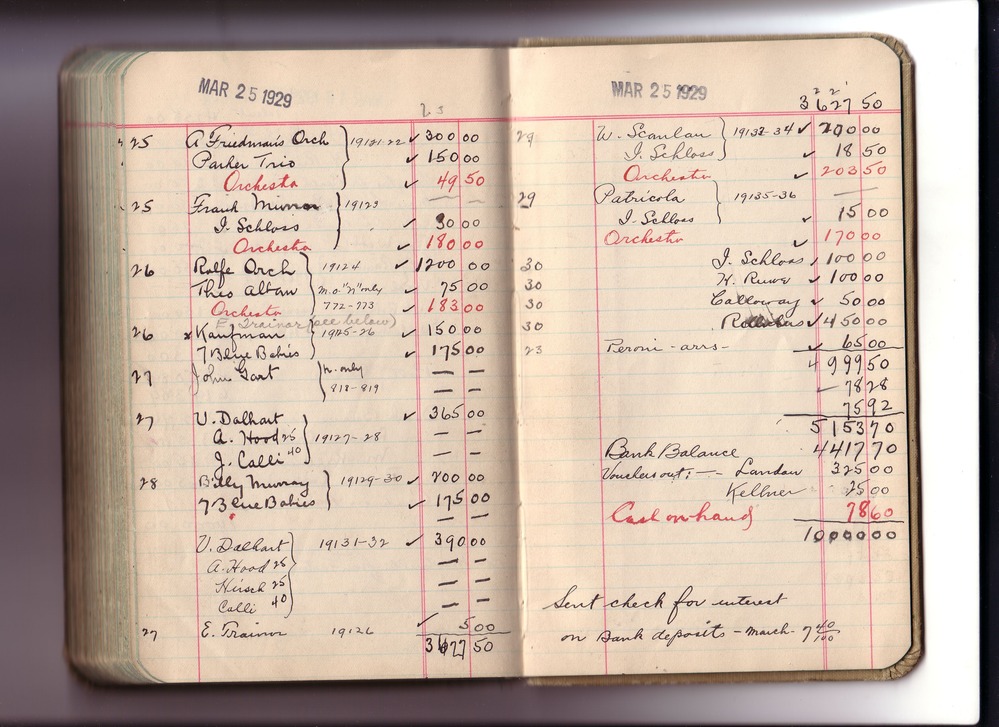 MAR 25 1929
25 A Friedman's Orch 19121-22 ✓ 300 00
Parker Trio ✓ 150 00
Orchestra ✓ 49 50
25 Frank Munn 19123 —
J. Schloss 30 00
Orchestra ✓ 180 00
26 Rolfe Orch 19124 ✓ 1200 00
Theo Alban m.o. "N" only ✓ 75 00
Orchestra 772-773 ✓ 183 00
E Trainor (see below)
26 x Kaufman 19125-26 ✓ 150 00
7 Blue Babies ✓ 175 00
27 John Gart N. only — —
818-819 — —
27 V. Dalhart ✓ 365 00
A. Hood 25 19127-28 — —
J. Calli 40 — —
28 Billy Murray 19129-30 ✓ 200 00
7 Blue Babies ✓ 175 00
— —
V. Dalhart 19131-32 ✓ 390 00
A. Hood 25 — —
Hirsch 25 — —
Calli 40 — —
27 E. Trainor 19126 ✓ 5 00
3627 50
MAR 25 1929
3627 50
29 W. Scanlan 19133-34 ✓ 200 00
J. Schloss ✓ 18 50
Orchestra ✓ 203 50
29 Patricola 19135-36 —
J. Schloss 15 00
Orchestra ✓ 170 00
30 J. Schloss ✓ 100 00
30 K. Ruwe ✓ 100 00
30 Calloway ✓ 50 00
30 ✓ 450 00
23 Peroni - arrs - ✓ 65 00
4999 50
78 28
75 92
5153 70
Bank Balance 4417 70
Vouchers out: — Landau 325 00
Kellner 25 00
Cash on hand 78 60
10000 00
Sent check for interest
on Bank deposits - March - 7 40/100